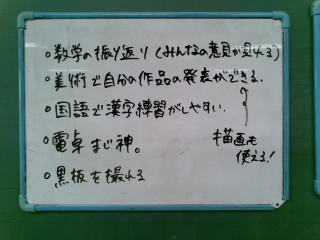 ○数学の振り返り(みんなの意見が見れる)
○美術で自分の作品の発表ができる。
○国語で漢字練習がしやすい。
○電卓まじ神。
描画も
使える!
○黒板を撮れる